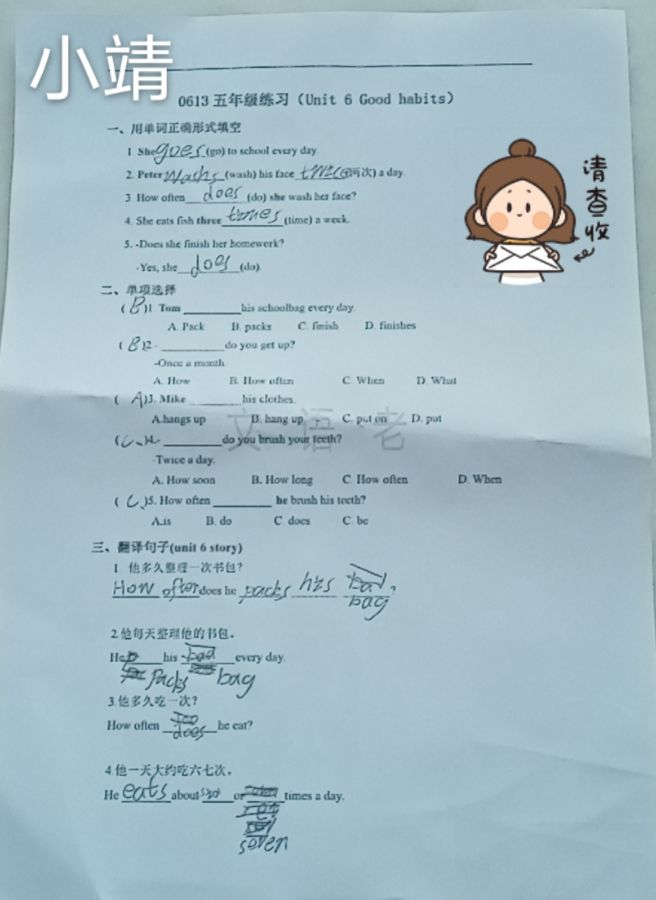 小靖
0613 五年级练习（Unit 6 Good habits）
请查收
一、用单词正确形式填空
1 She goes (go) to school every day.
2. Peter washs (wash) his face (两次) a day.
3 How often does (do) she wash her face?
4. She eats fish three times (time) a week.
5. -Does she finish her homework?
-Yes, she does (do).
二、单项选择
( B )1 Tom ________ his schoolbag every day.
A. Pack B. packs C. finish D. finishes
( B )2 - ________ do you get up?
-Once a month.
A. How B. How often C. When D. What
( A )3. Mike ________ his clothes.
A.hangs up B. hang up C. put on D. put
文 语 老
( C )4- ________ do you brush your teeth?
-Twice a day.
A. How soon B. How long C. How often D. When
( C )5. How often ________ he brush his teeth?
A.is B. do C does C. be
三、翻译句子(unit 6 story)
1. 他多久整理一次书包？
How often does he packs his bag ?
2.他每天整理他的书包。
He his every day.
packs bag
3.他多久吃一次？
How often does he eat?
4 他一天大约吃六七次。
He eats about or times a day.
seven